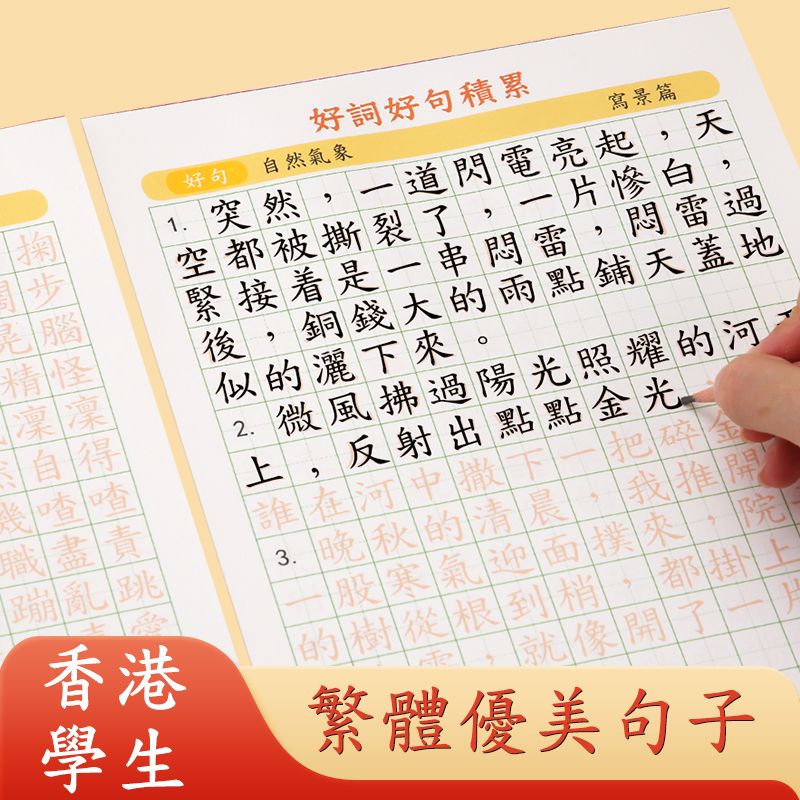 掬
步
晃腦
精怪
凜凜
然自得
嘰喳喳
職盡責
蹦亂跳
好詞好句積累
好句 自然氣象 寫景篇
1. 突然，一道閃電亮起，天
空都被撕裂了，一片慘白，
緊接着是一串悶雷，悶雷過
後，銅錢大的雨點鋪天蓋地
似的灑下來。
2. 微風拂過陽光照耀的河
上，反射出點點金光
誰在河中撒下一把碎金
3. 晚秋的清晨，我推開
一股寒氣迎面撲來，院
的樹從根到梢，都掛上
，就像開了一片
香港
學生
繁體優美句子